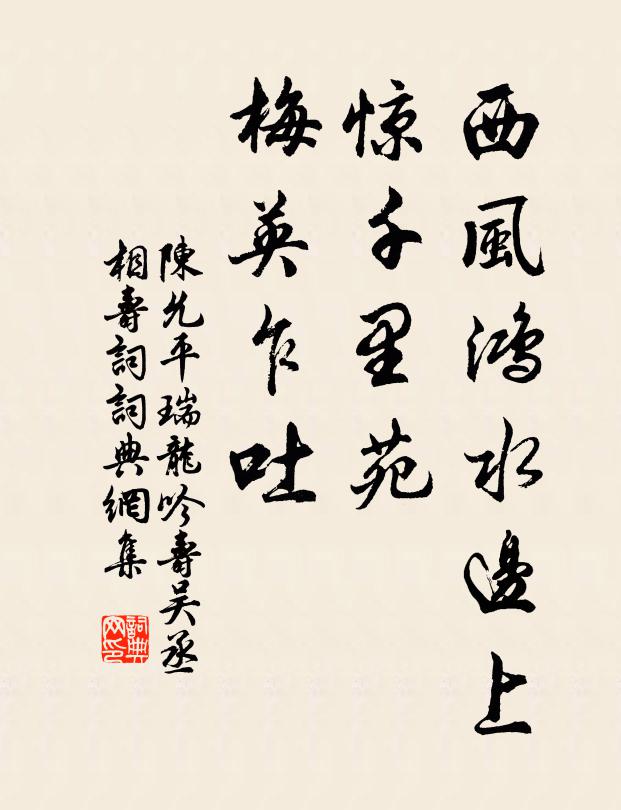 西風鸿水邊上
惊千里苑
梅英乍吐
陳允平瑞龍吟壽吴丞
相壽詞詞典網集
詞典
网印